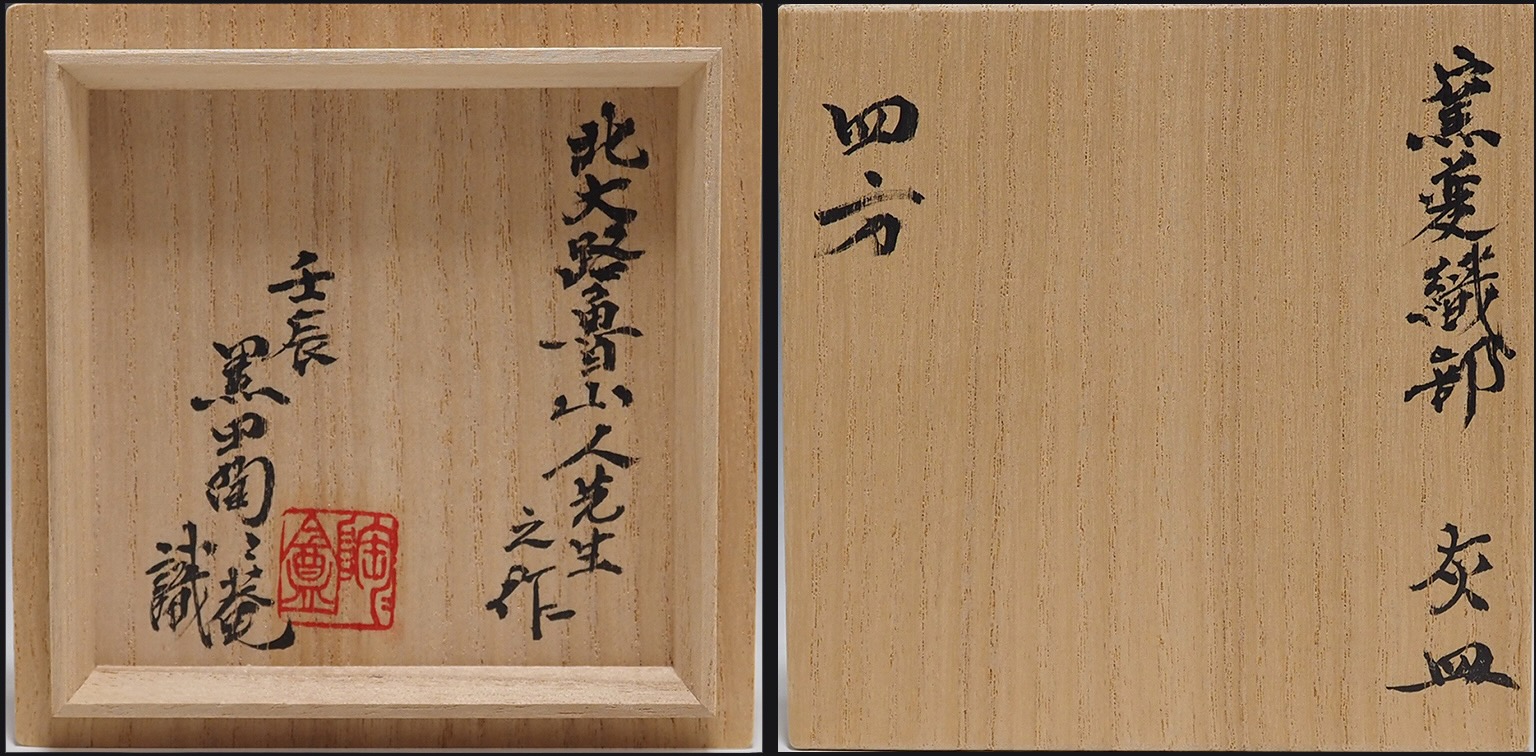 窯変織部 灰皿
四方
北大路魯山人先生
之作
壬辰
黒田陶〻菴
識
陶〻盦